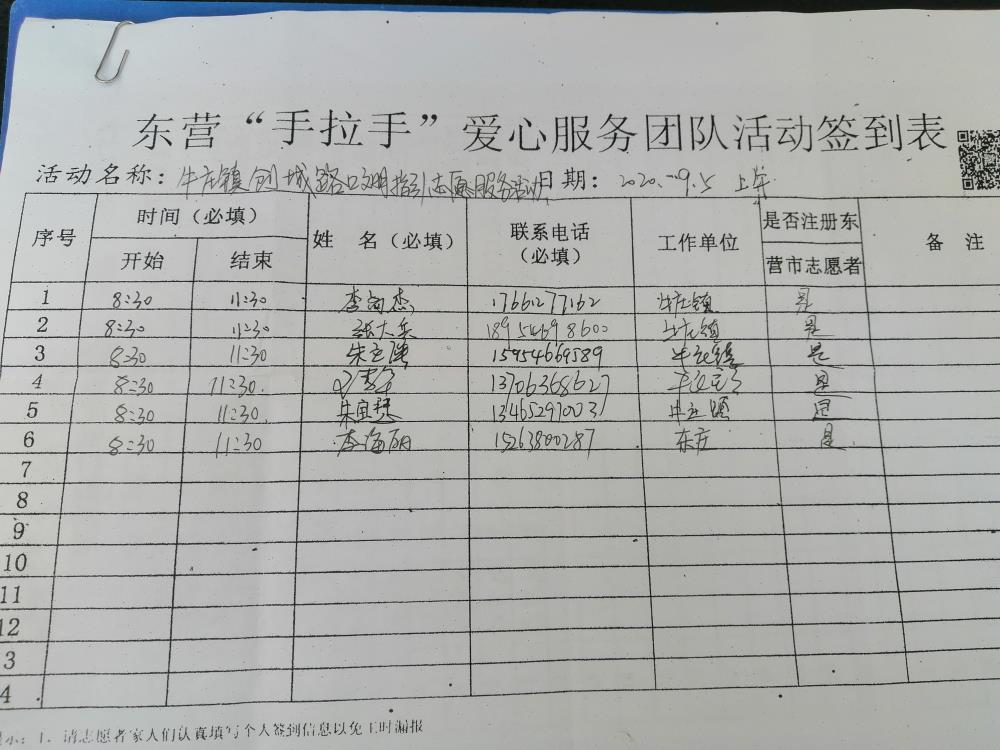 东营“手拉手”爱心服务团队活动签到表
活动名称：牛庄镇创城路口文明指引志愿服务活动 日期：2020.9.5 上午
序号 时间（必填） 姓 名（必填） 联系电话（必填） 工作单位 是否注册东营市志愿者 备 注
开始 结束
1 8:30 11:30 杰 17661277162 牛庄镇 是
2 8:30 11:30 张大兵 18954698600 牛庄镇 是
3 8:30 11:30 朱 15954669589 牛庄镇 是
4 8:30 11:30 13706368627 是
5 8:30 11:30 朱宝 13465297003 牛庄镇 是
6 8:30 11:30 李海丽 15263800287 东庄 是
7
8
9
10
11
12
3
4
示：1、请志愿者家人们认真填写个人签到信息以免工时漏报